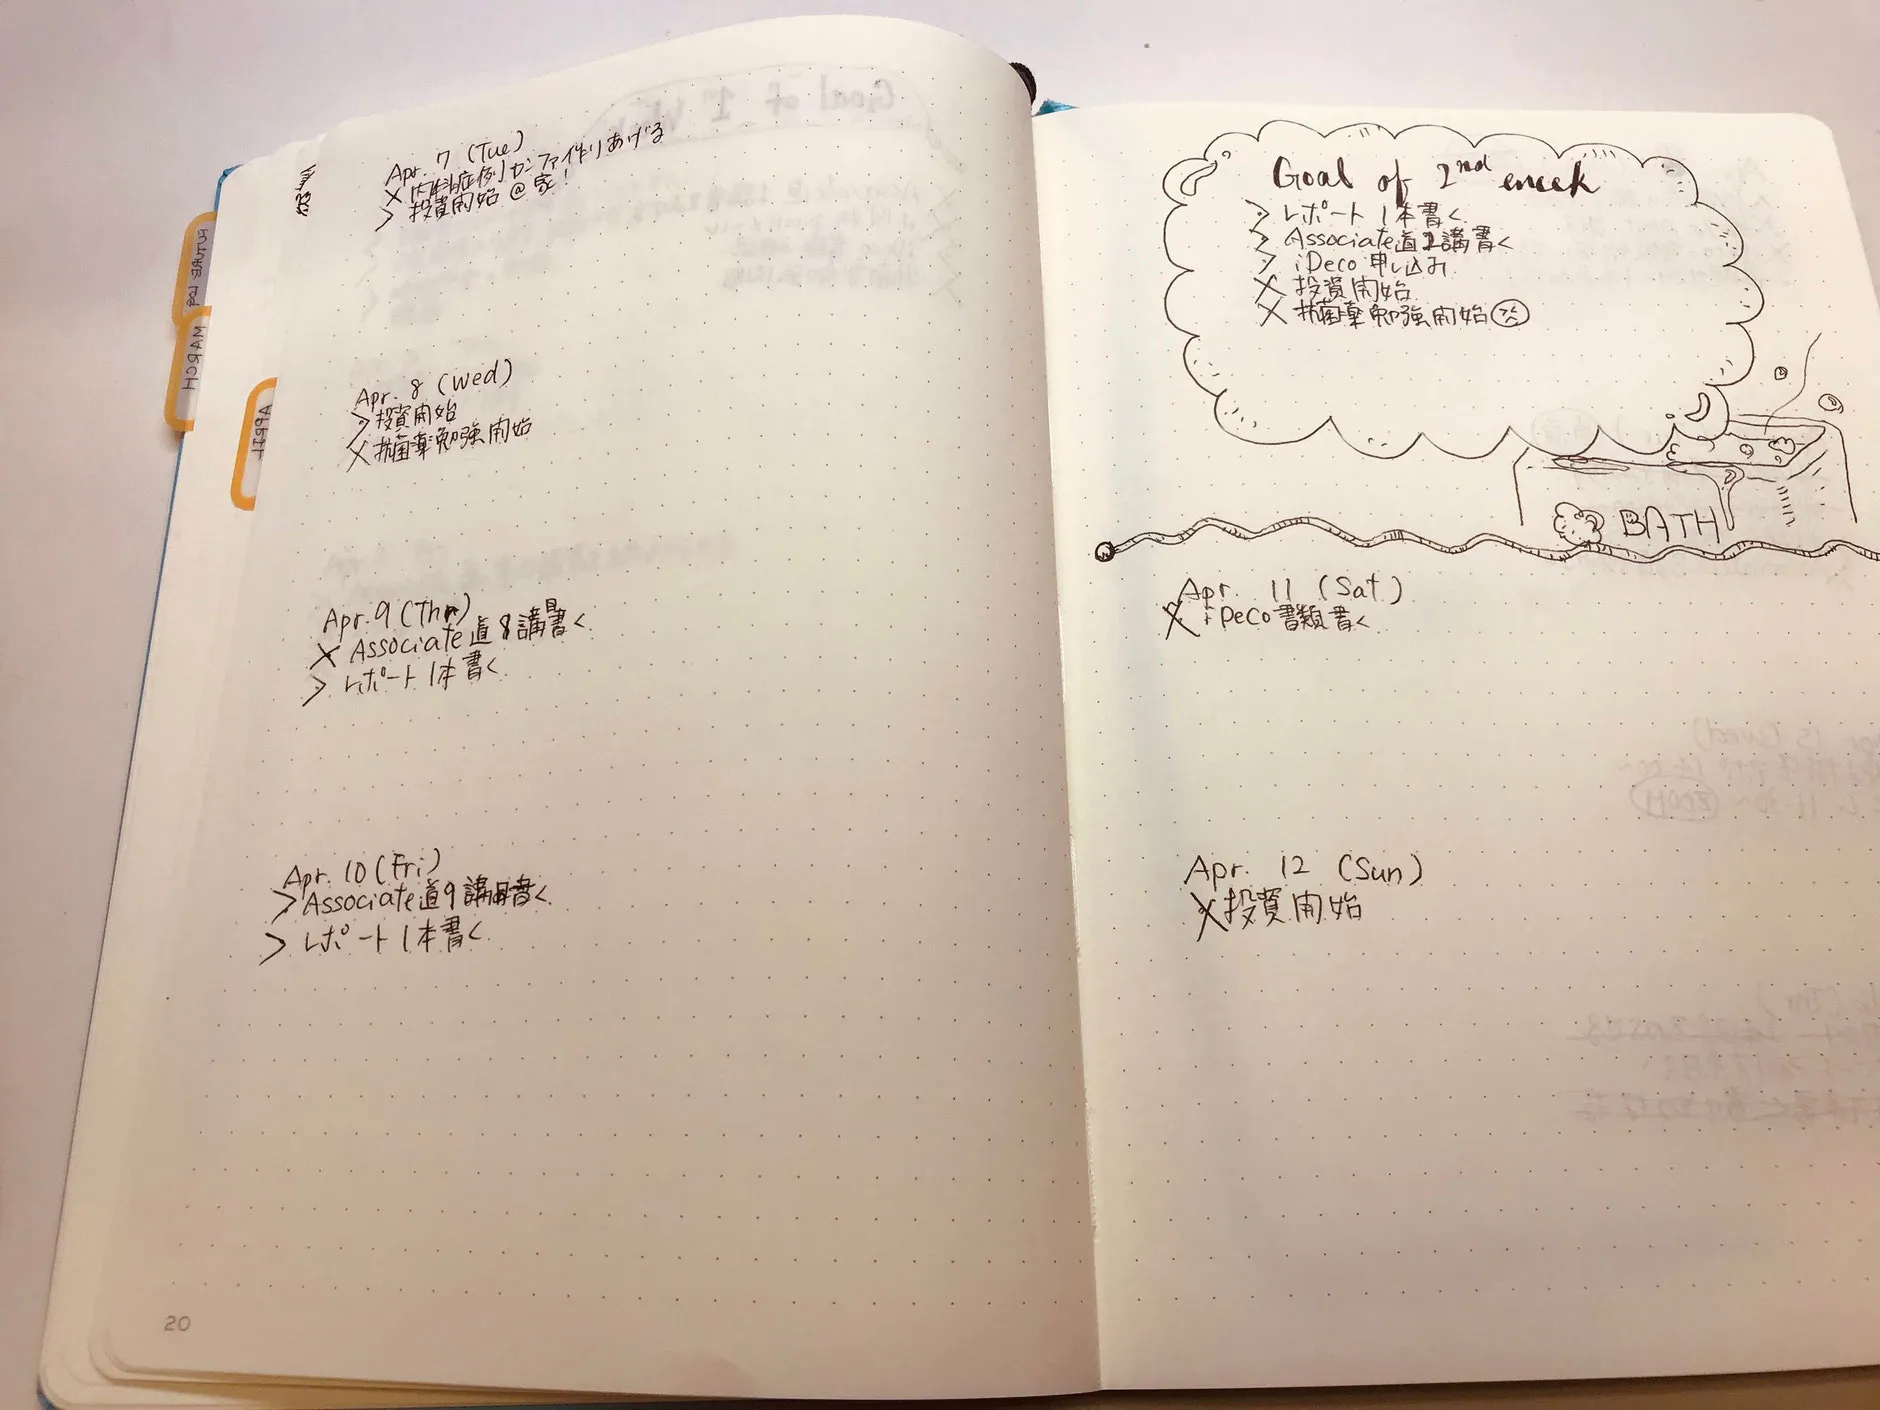 FUTURE Log
MARCH
APRIL
Apr. 7 (Tue)
× 内科症例カンファ作りあげる
> 投資開始@家!
Apr. 8 (Wed)
> 投資開始
× 抗菌薬勉強開始
Apr. 9 (Thr)
× Associate道8講目書く
> レポート1本書く
Apr. 10 (Fri)
> Associate道9講目書く
> レポート1本書く
20
Goal of 2nd week
> レポート1本書く
> Associate道2講書く
> iDeco申し込み
× 投資開始
× 抗菌薬勉強開始
BATH
Apr. 11 (Sat)
× iDeco書類書く
Apr. 12 (Sun)
× 投資開始